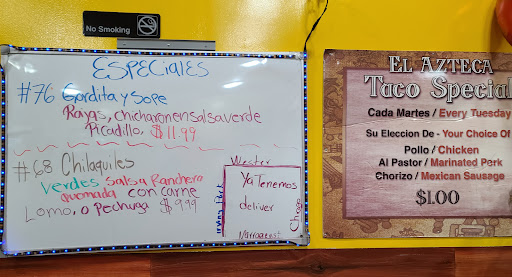 No Smoking
ESPECiales
#76 Gordita y Sope
Rajas, chicharonensalsaverde
Picadillo, $11.99
#68 Chilaquiles
Verdes, salsa Ranchera
quemada con carne
Lomo, o pechuga $9.99
Wester
Ya Tenemos
deliver
Irving Park
Chicago
EL AZTECA
Taco Special
Cada Martes / Every Tuesday
Su Eleccion De - Your Choice Of
Pollo / Chicken
Al Pastor / Marinated Perk
Chorizo / Mexican Sausage
$1.00